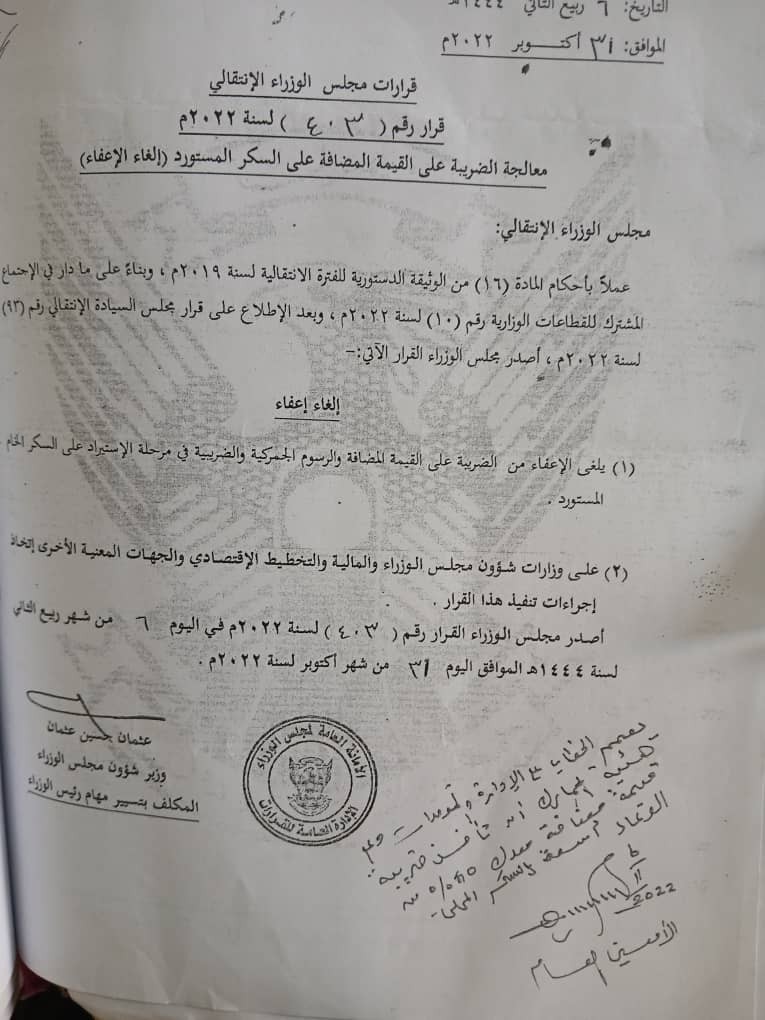 التاريخ: ٦ ربيع الثاني ١٤٤٤هـ
الموافق: ٣١ أكتوبر ٢٠٢٢م
قرارات مجلس الوزراء الإنتقالي
قرار رقم ( ٤٠٣ ) لسنة ٢٠٢٢م
معالجة الضريبة على القيمة المضافة على السكر المستورد (إلغاء الإعفاء)
مجلس الوزراء الإنتقالي:
عملاً بأحكام المادة (١٦) من الوثيقة الدستورية للفترة الانتقالية لسنة ٢٠١٩م ، وبناءً على ما دار في الإجتماع
المشترك للقطاعات الوزارية رقم (١٠) لسنة ٢٠٢٢م ، وبعد الإطلاع على قرار مجلس السيادة الإنتقالي رقم (٩٣)
لسنة ٢٠٢٢م ، أصدر مجلس الوزراء القرار الآتي:–
إلغاء إعفاء
(١) يلغى الإعفاء من الضريبة على القيمة المضافة والرسوم الجمركية والضريبية في مرحلة الإستيراد على السكر الخام
المستورد .
(٢) على وزارات شؤون مجلس الوزراء والمالية والتخطيط الإقتصادي والجهات المعنية الأخرى إتخاذ
إجراءات تنفيذ هذا القرار .
أصدر مجلس الوزراء القرار رقم ( ٤٠٣ ) لسنة ٢٠٢٢م في اليوم ٦ من شهر ربيع الثاني
لسنة ١٤٤٤هـ الموافق اليوم ٣١ من شهر أكتوبر لسنة ٢٠٢٢م .
عثمان حسين عثمان
وزير شؤون مجلس الوزراء
المكلف بتسيير مهام رئيس الوزراء
الأمانة العامة لمجلس الوزراء
الإدارة العامة للقرارات
يعمم الخطاب
هيئة الجمارك ضريبة
قيمة مضافة
السكر المحلي
2022
الأمين العام